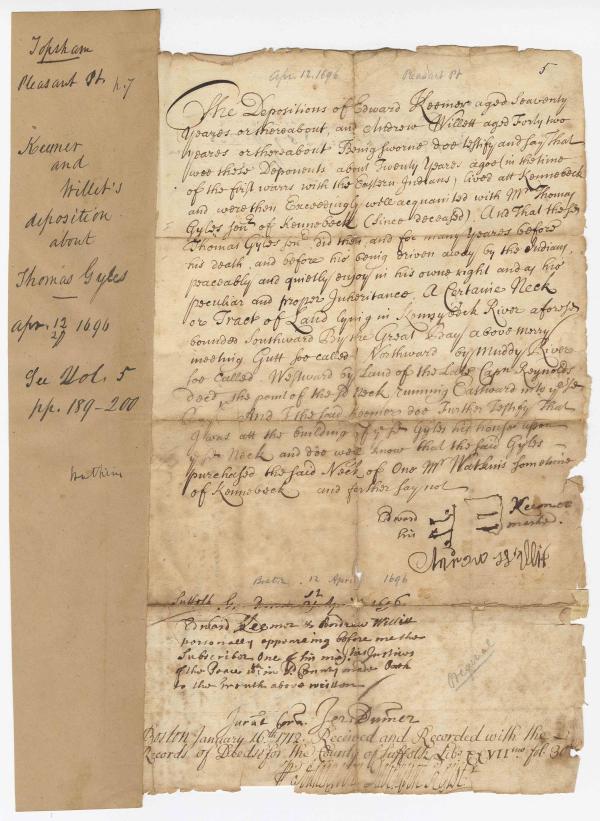 Topsham
Pleasant Pt. h.7
Keemer
and
Willet's
deposition
about
Thomas Gyles
Apr. 12/27 1696
See Vol. 5
pp. 189-200
Watkins
Apr. 12. 1696 Pleasant Pt 5
The Depositions of Edward Keemer aged Seaventy
Yeares or thereabout, and Andrew Willett aged Forty two
Yeares or thereabout Being Sworne doe testify and say that
wee these Deponents about Twenty Yeares agoe (in the time
of the first warrs with the Eastern Indians) lived att Kennebeck
and were then Exceedingly well acquainted with Mr Thomas
Gyles senr of Kennebeck (since deceased). And That the sd
Thomas Gyles senr did then, and for many Yeares before
his death, and before his being driven away by the Indians,
peaceably and quietly enjoy in his owne right and as his
peculiar and propper Inheritance, A Certaine Neck
or Tract of Land lying in Kennebeck River aforesd
bounded Southward By the Great Bay above merry
meeting Gutt soe called Northward by Muddy River
soe Called Westward by Land of the Late Capn Reynolds
decd the point of the sd Neck running Eastward into ye sd
And I the said Keemer doe Further Testify That
I was att the building of ye sd Gyles his house upon
ye sd Neck and doe well know that the said Gyles
purchased the said Neck of One Mr Watkins sometime
of Kennebeck and further say not
Edward Keemer
his marke.
Andrew Willit
Boston 12 April 1696
Suffolk 1696
Edward Keemer & Andrew Willit
personally appearing before me the
Subscriber One of his majties Justices
of the Peace in sd County made Oath
to the truth above written
Original
Jurat Cora. Jer. Dumer
Boston January 16th 1712. Received and Recorded with the
Records of Deeds for the County of Suffolk Lib. XXVIImo fol. 30